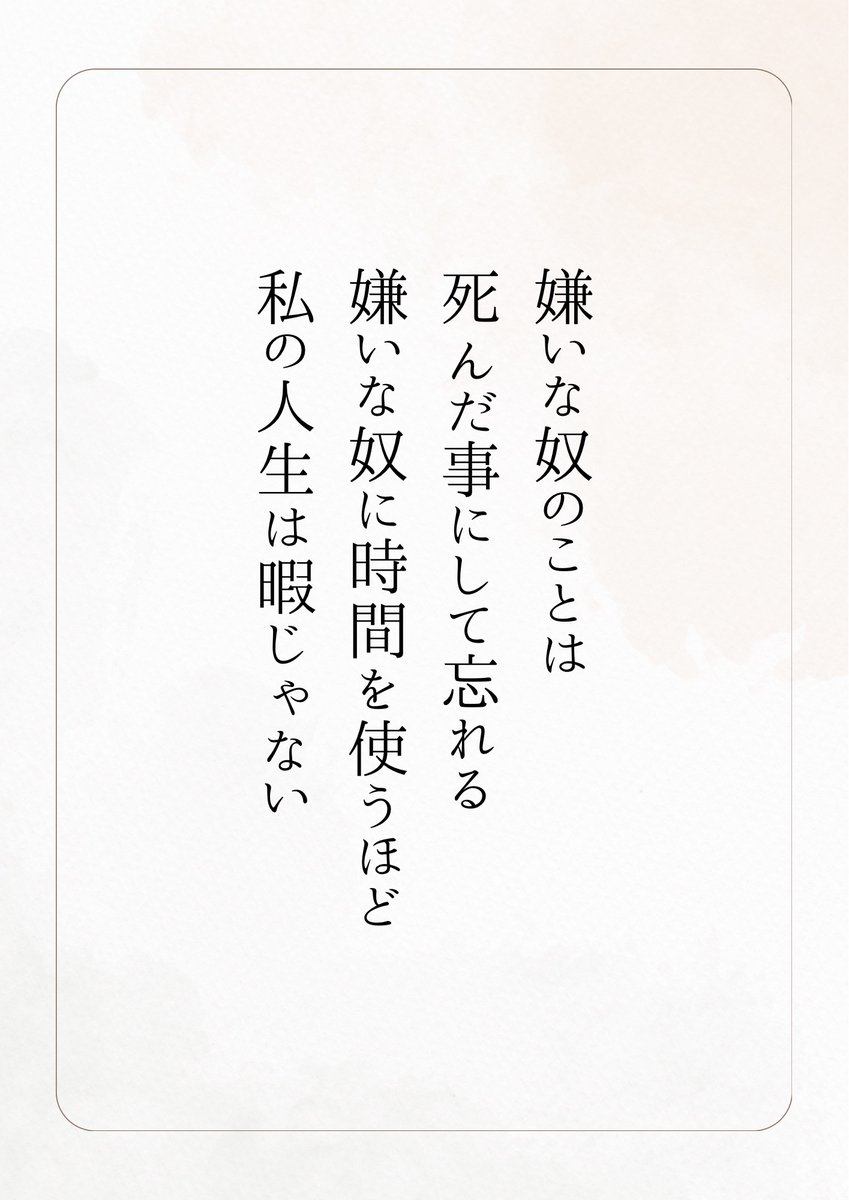 嫌いな奴のことは
死んだ事にして忘れる
嫌いな奴に時間を使うほど
私の人生は暇じゃない